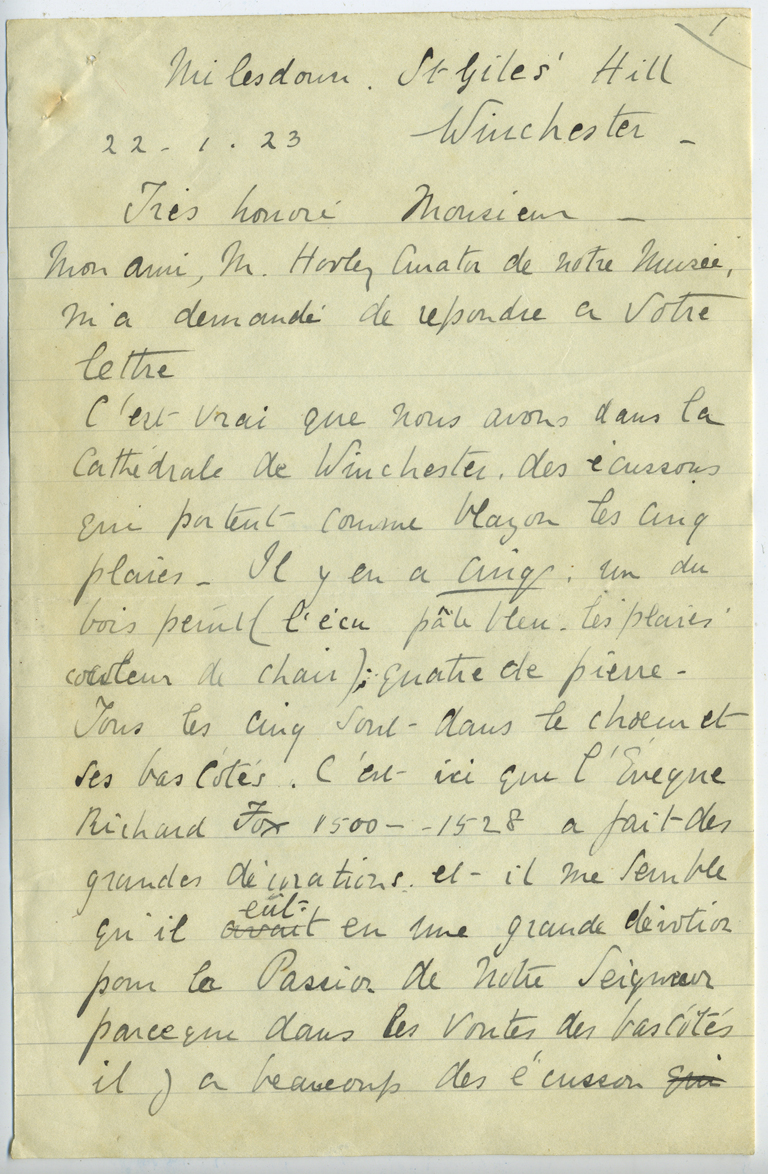 1
Milesdown. St Giles' Hill
22 - 1 . 23 Winchester -
Très honoré Monsieur -
Mon ami, M. Curator de notre Musée,
m'a demandé de repondre a Votre
lettre
C'est vrai que nous avons dans la
Cathédrale de Winchester, des écussons
qui portent comme blazon les cinq
plaies - Il y en a cinq : un du
bois peint ( l'écu pâle bleu - les plaies
couleur de chair); quatre de pierre -
Tous les cinq sont dans le choeur et
ses bas côtés. C'est ici que l'Evêque
Richard Fox 1500 - - 1528 a fait des
grandes décorations. et il me semble
qu'il avait eût eu une grande dévotion
pour la Passion de Notre Seigneur
parceque dans les voutes des bas côtés
il y a beaucoup des écusson qui